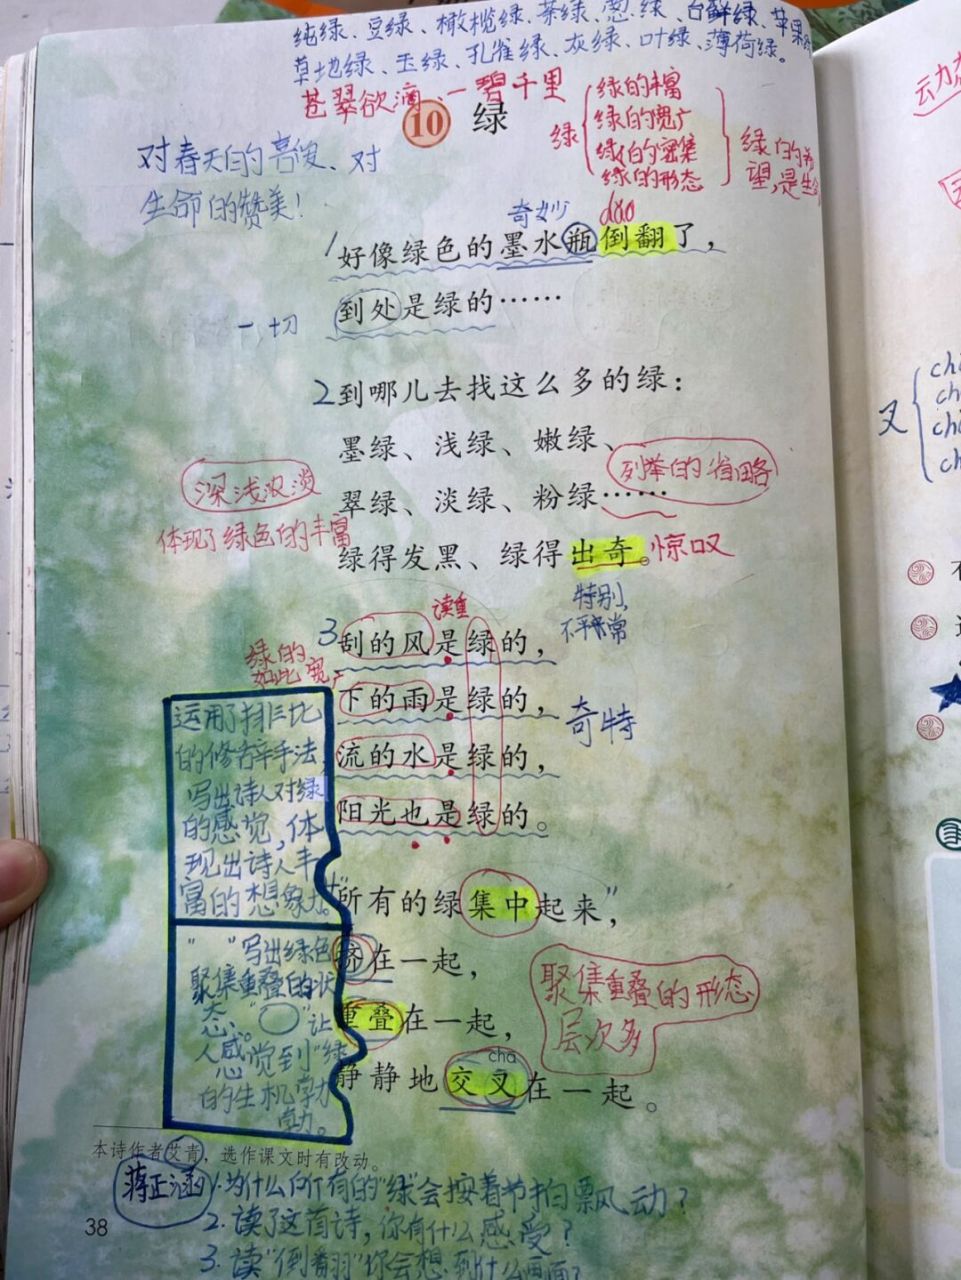 纯绿、豆绿、橄榄绿、茶绿、葱绿、台鲜绿、苹果绿
草地绿、玉绿、孔雀绿、灰绿、叶绿、薄荷绿。
苍翠欲滴、一碧千里
10 绿
绿
绿的丰富
绿的宽广
绿的密集
绿的形态
绿的希
望,是生命
对春天的喜爱、对
生命的赞美!
奇妙 dào
1 好像绿色的墨水瓶倒翻了,
到处是绿的……
一切
2 到哪儿去找这么多的绿:
墨绿、浅绿、嫩绿、
列举的省略
翠绿、淡绿、粉绿……
深浅浓淡
体现了绿色的丰富
绿得发黑、绿得出奇。惊叹
特别,
不平常
读重
3 刮的风是绿的,
绿的
如此宽广
下的雨是绿的,
奇特
流的水是绿的,
阳光也是绿的。
运用了排比
的修辞手法,
写出诗人对绿
的感觉,体
现出诗人丰
富的想象力。
"所有的绿集中起来",
挤在一起,
重叠在一起,
静静地交叉在一起。
chā
聚集重叠的形态
层次多
" "写出绿色
聚集重叠的状
态、"○"让
人感觉到"绿
的生机
本诗作者艾青,选作课文时有改动。
蒋正涵
1.为什么所有的"绿"会按着节拍飘动?
2.读了这首诗,你有什么感受?
3.读"倒翻"你会想到什么画面?
38
动态
叉